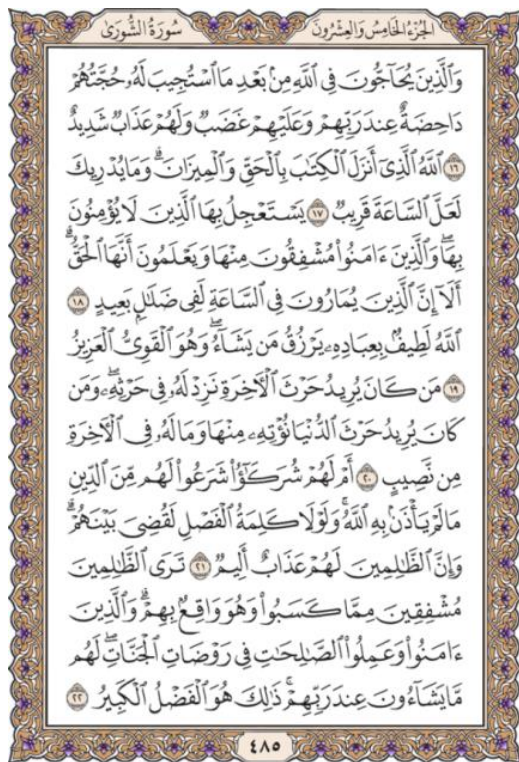 الجُزْءُ الخَامِسُ وَالعِشْرُونَ سُورَةُ الشُّورَىٰ
وَٱلَّذِينَ يُحَآجُّونَ فِى ٱللَّهِ مِنۢ بَعْدِ مَا ٱسْتُجِيبَ لَهُۥ حُجَّتُهُمْ
دَاحِضَةٌ عِندَ رَبِّهِمْ وَعَلَيْهِمْ غَضَبٌ وَلَهُمْ عَذَابٌ شَدِيدٌ
١٦ ٱللَّهُ ٱلَّذِىٓ أَنزَلَ ٱلْكِتَٰبَ بِٱلْحَقِّ وَٱلْمِيزَانَ ۗ وَمَا يُدْرِيكَ
لَعَلَّ ٱلسَّاعَةَ قَرِيبٌ ١٧ يَسْتَعْجِلُ بِهَا ٱلَّذِينَ لَا يُؤْمِنُونَ
بِهَا ۖ وَٱلَّذِينَ ءَامَنُوا۟ مُشْفِقُونَ مِنْهَا وَيَعْلَمُونَ أَنَّهَا ٱلْحَقُّ ۗ
أَلَآ إِنَّ ٱلَّذِينَ يُمَارُونَ فِى ٱلسَّاعَةِ لَفِى ضَلَٰلٍۭ بَعِيدٍ ١٨
ٱللَّهُ لَطِيفٌۢ بِعِبَادِهِۦ يَرْزُقُ مَن يَشَآءُ ۖ وَهُوَ ٱلْقَوِىُّ ٱلْعَزِيزُ
١٩ مَن كَانَ يُرِيدُ حَرْثَ ٱلْءَاخِرَةِ نَزِدْ لَهُۥ فِى حَرْثِهِۦ ۖ وَمَن
كَانَ يُرِيدُ حَرْثَ ٱلدُّنْيَا نُؤْتِهِۦ مِنْهَا وَمَا لَهُۥ فِى ٱلْءَاخِرَةِ
مِن نَّصِيبٍ ٢٠ أَمْ لَهُمْ شُرَكَٰٓؤُا۟ شَرَعُوا۟ لَهُم مِّنَ ٱلدِّينِ
مَا لَمْ يَأْذَنۢ بِهِ ٱللَّهُ ۚ وَلَوْلَا كَلِمَةُ ٱلْفَصْلِ لَقُضِىَ بَيْنَهُمْ ۗ
وَإِنَّ ٱلظَّٰلِمِينَ لَهُمْ عَذَابٌ أَلِيمٌ ٢١ تَرَى ٱلظَّٰلِمِينَ
مُشْفِقِينَ مِمَّا كَسَبُوا۟ وَهُوَ وَاقِعٌۢ بِهِمْ ۗ وَٱلَّذِينَ
ءَامَنُوا۟ وَعَمِلُوا۟ ٱلصَّٰلِحَٰتِ فِى رَوْضَاتِ ٱلْجَنَّاتِ ۖ لَهُم
مَّا يَشَآءُونَ عِندَ رَبِّهِمْ ۚ ذَٰلِكَ هُوَ ٱلْفَضْلُ ٱلْكَبِيرُ ٢٢
٤٨٥